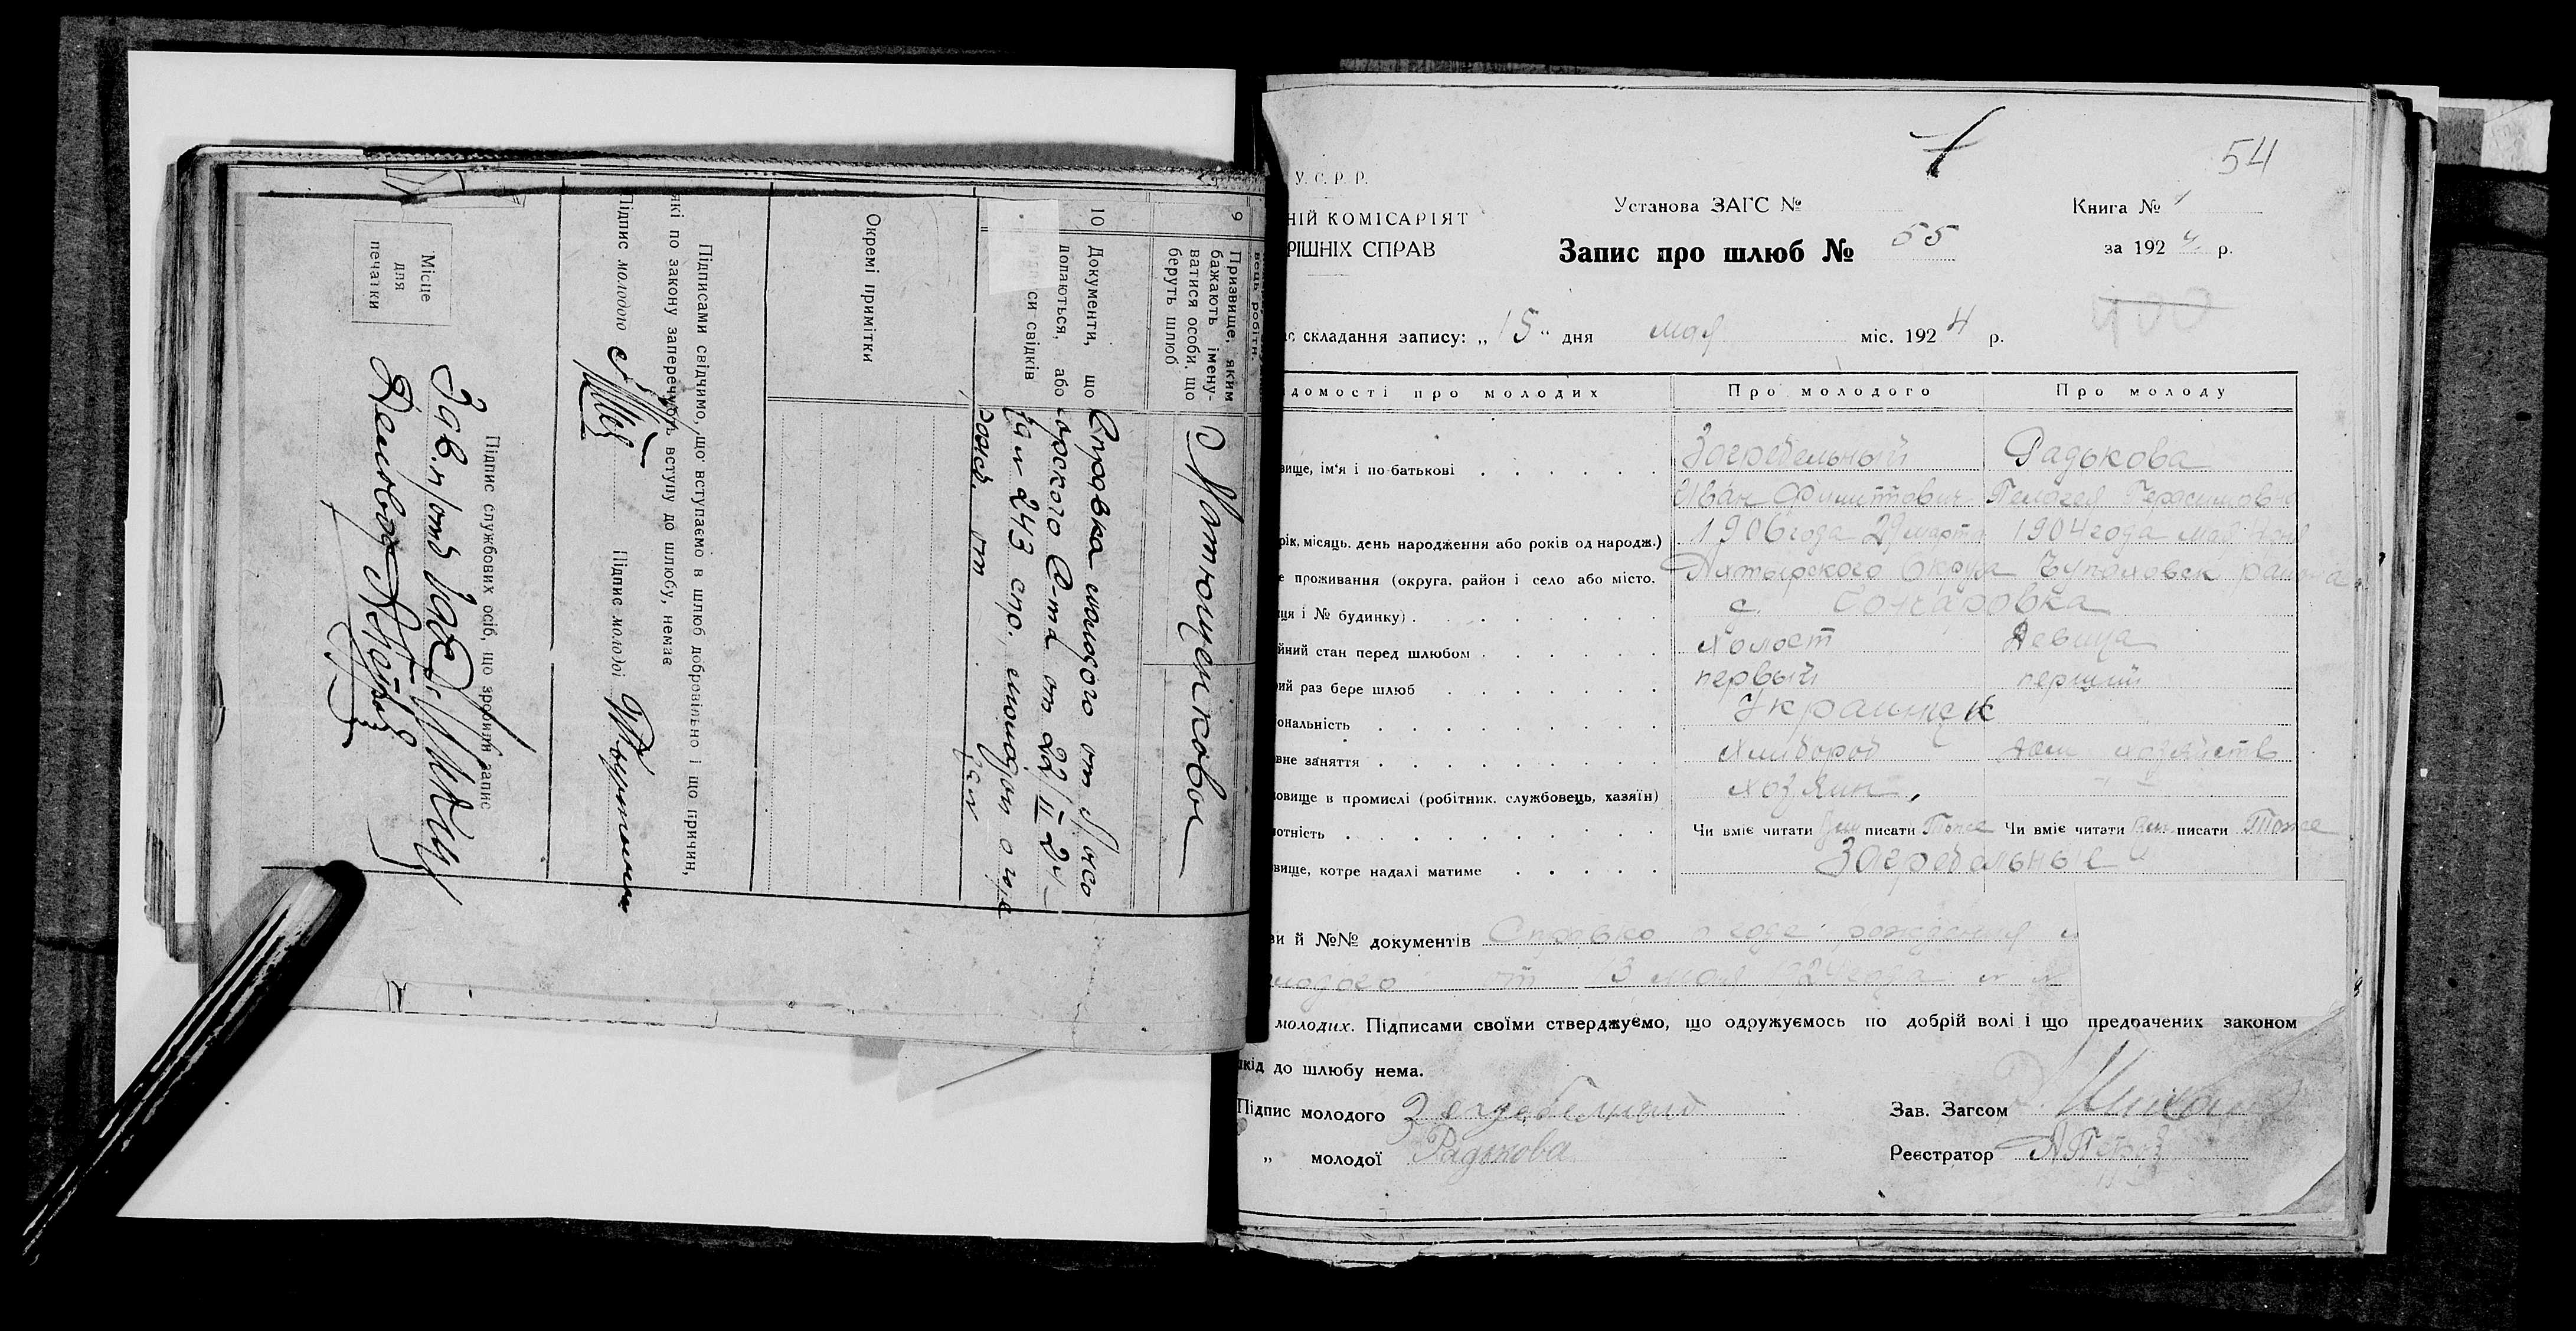 9 Призвище, яким
бажають імену-
ватися особи, що
беруть шлюб
Матюшенковы
10 Документи, що
додаються, або
си свідків
Справка молодого от
от 22/II 24
243 спр.
рожд. от
Окремі примітки
Підписами свідчимо, що вступаємо в шлюб добровільно і що причин,
які по закону заперечують вступу до шлюбу, немає
Підпис молодого
Підпис молодої
Підпис службових осіб, що зробили запис
Зав. п/отд Загс
Деловод
Місце
для
печатки
54
У. С. Р. Р.
НІЙ КОМІСАРІЯТ
РІШНІХ СПРАВ
Установа ЗАГС №
Запис про шлюб № 55
Книга № 1
за 1924 р.
складання запису: „15" дня мая міс. 1924 р.
домості про молодих
Про молодого
Про молоду
вище, ім'я і по-батькові
Загребельный
Радькова
Иван Филиттович
Пелагея Герасимовна
рік, місяць, день народження або років од народж.)
1906 года 29 марта
1904 года мая
е проживання (округа, район і село або місто,
Ахтырского Округа Чупаховск района
ця і № будинку)
с. Гончаровка
йний стан перед шлюбом
холост
Девица
ий раз бере шлюб
первый
перший
ональність
Украинск
вне заняття
Хлибороб
дом хозяйств
овище в промислі (робітник, службовець, хазяїн)
хозяин,
-"-
отність
Чи вміє читати Ум писати Тоже
Чи вміє читати Ум писати Тоже
вище, котре надалі матиме
Загребельные
ви й №№ документів Справка о годе рождения и
молодого от 13 мая 1924 года
молодих. Підписами своїми стверджуємо, що одружуємось по добрій волі і що предбачених законом
шкід до шлюбу нема.
Підпис молодого
Зав. Загсом
„ молодої Радькова
Реєстратор